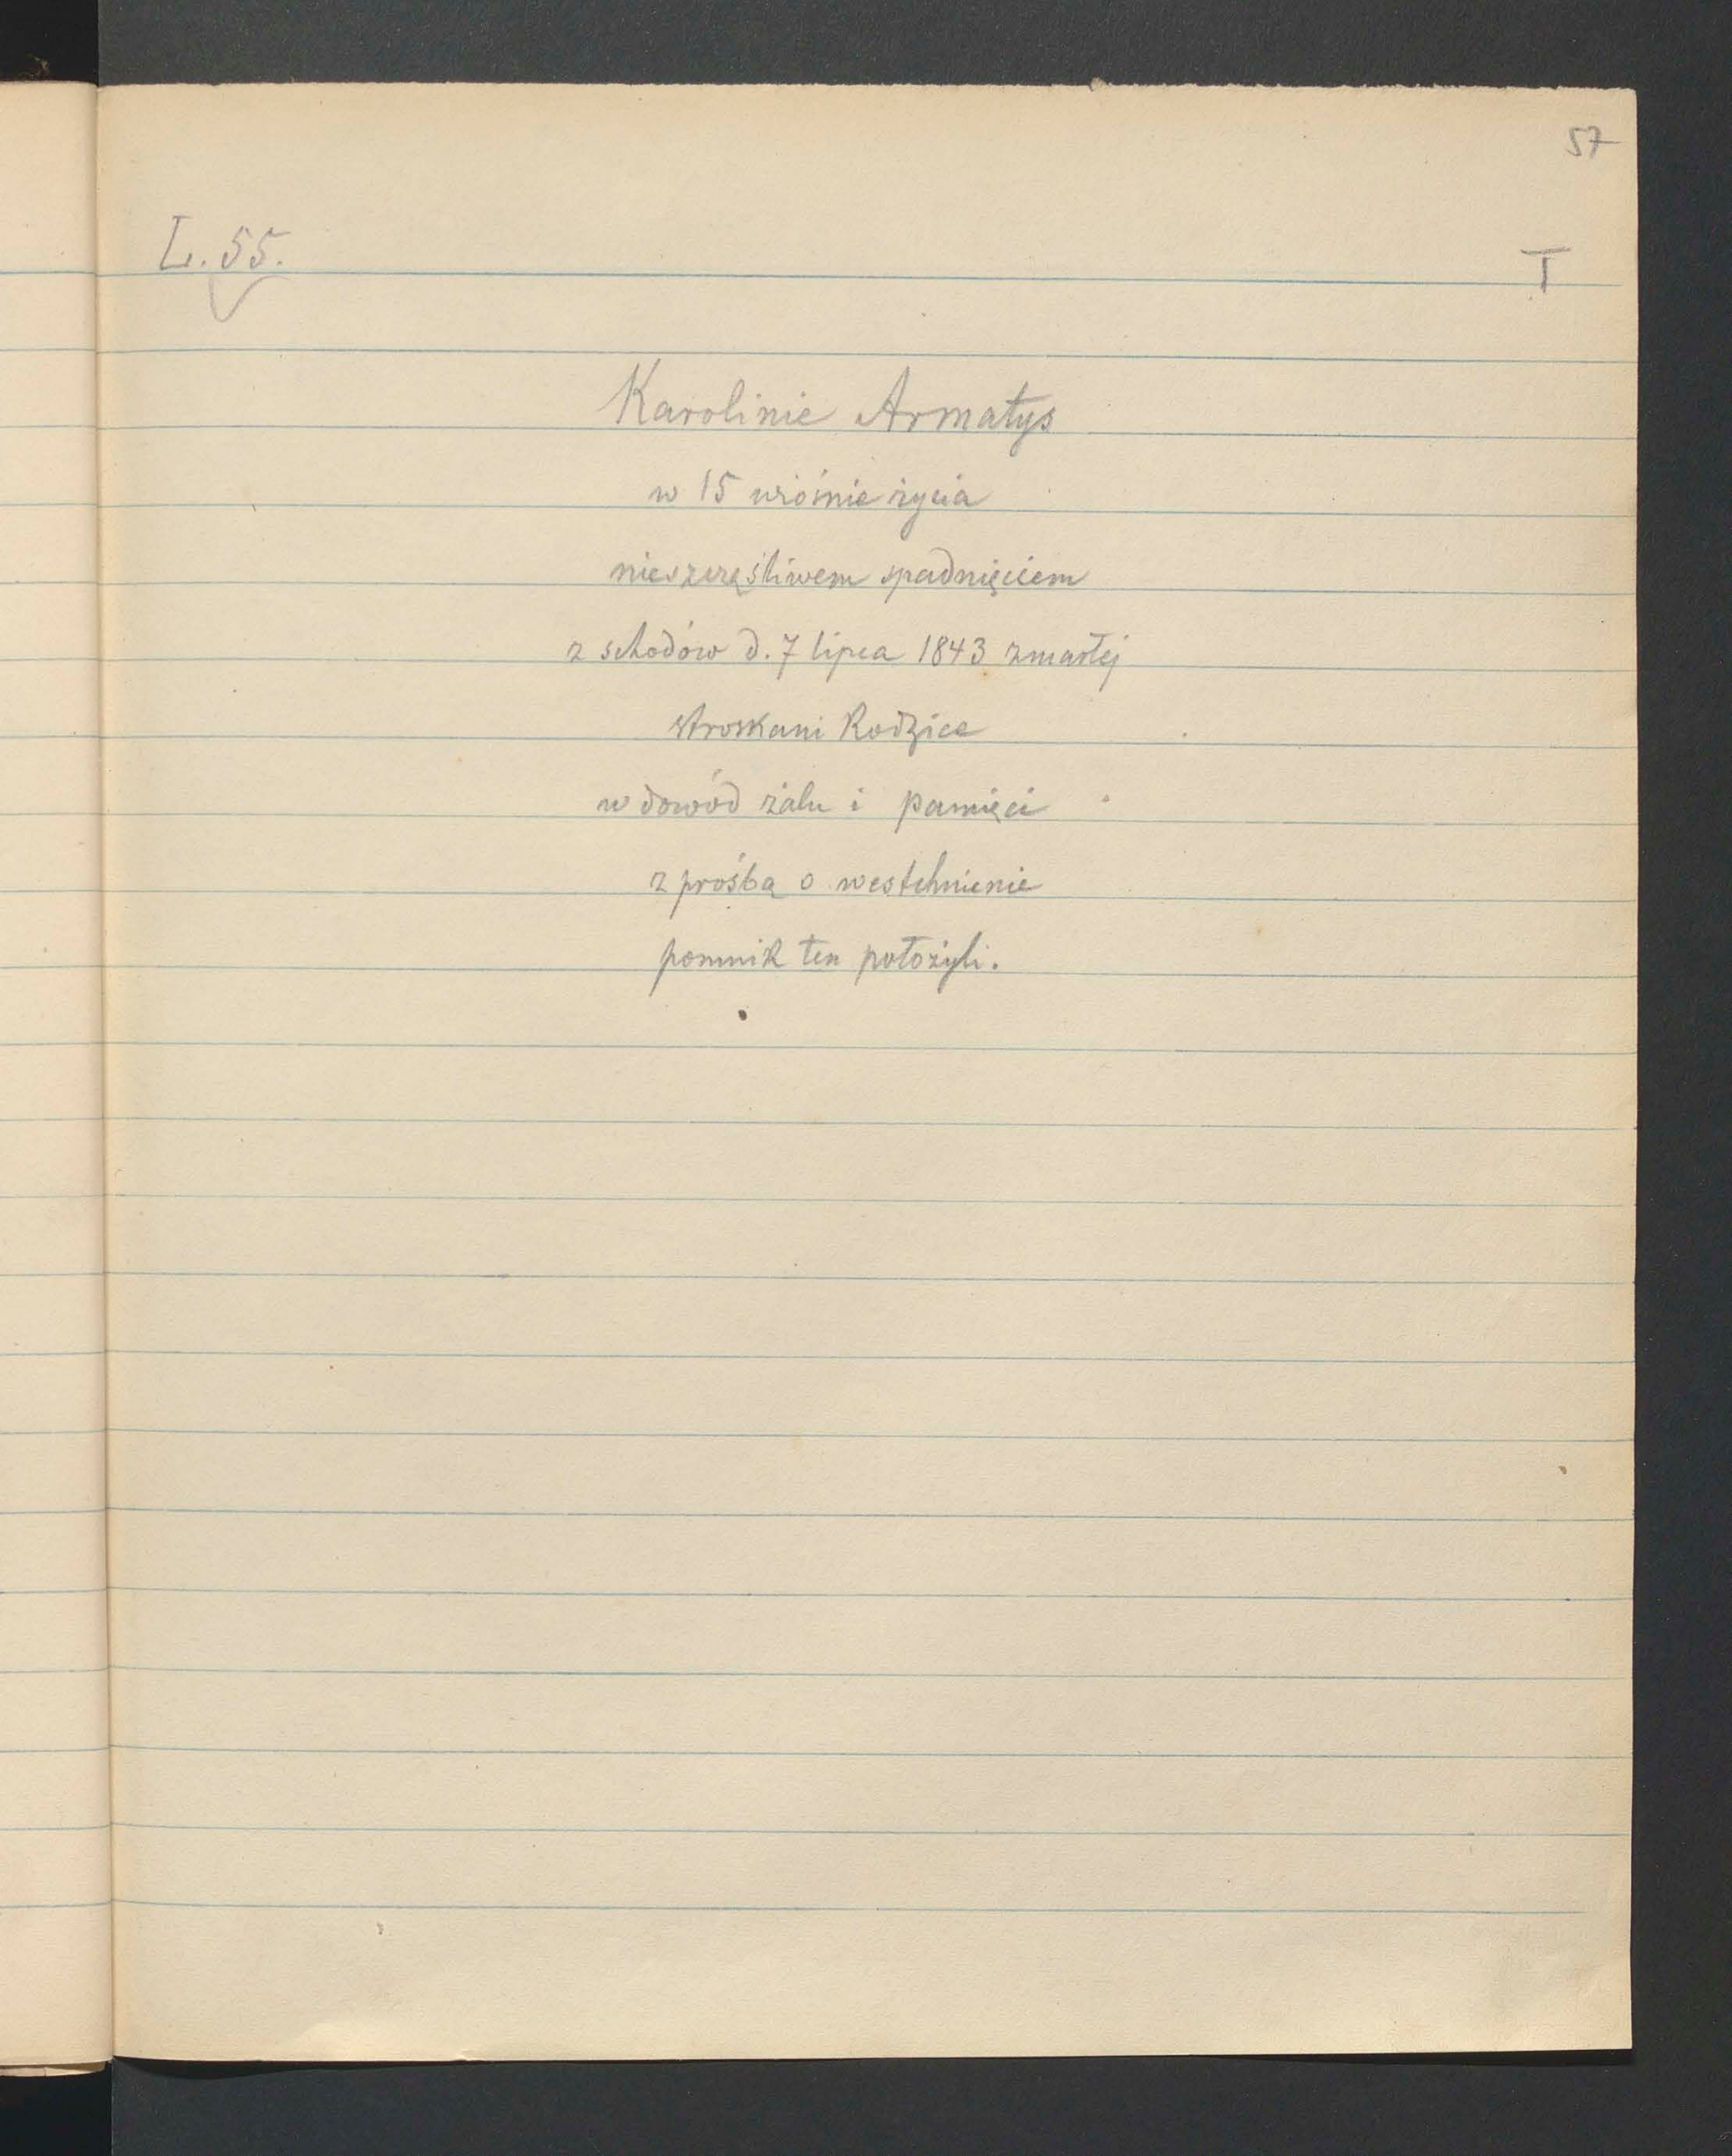 57
L. 55.
T
Karolinie Armatys
w 15 wiośnie życia
nieszczęśliwem spadnięciem
z schodów d. 7 lipca 1843 zmarłej
stroskani Rodzice
w dowód żalu i pamięci
z prośbą o westchnienie
pomnik ten położyli.